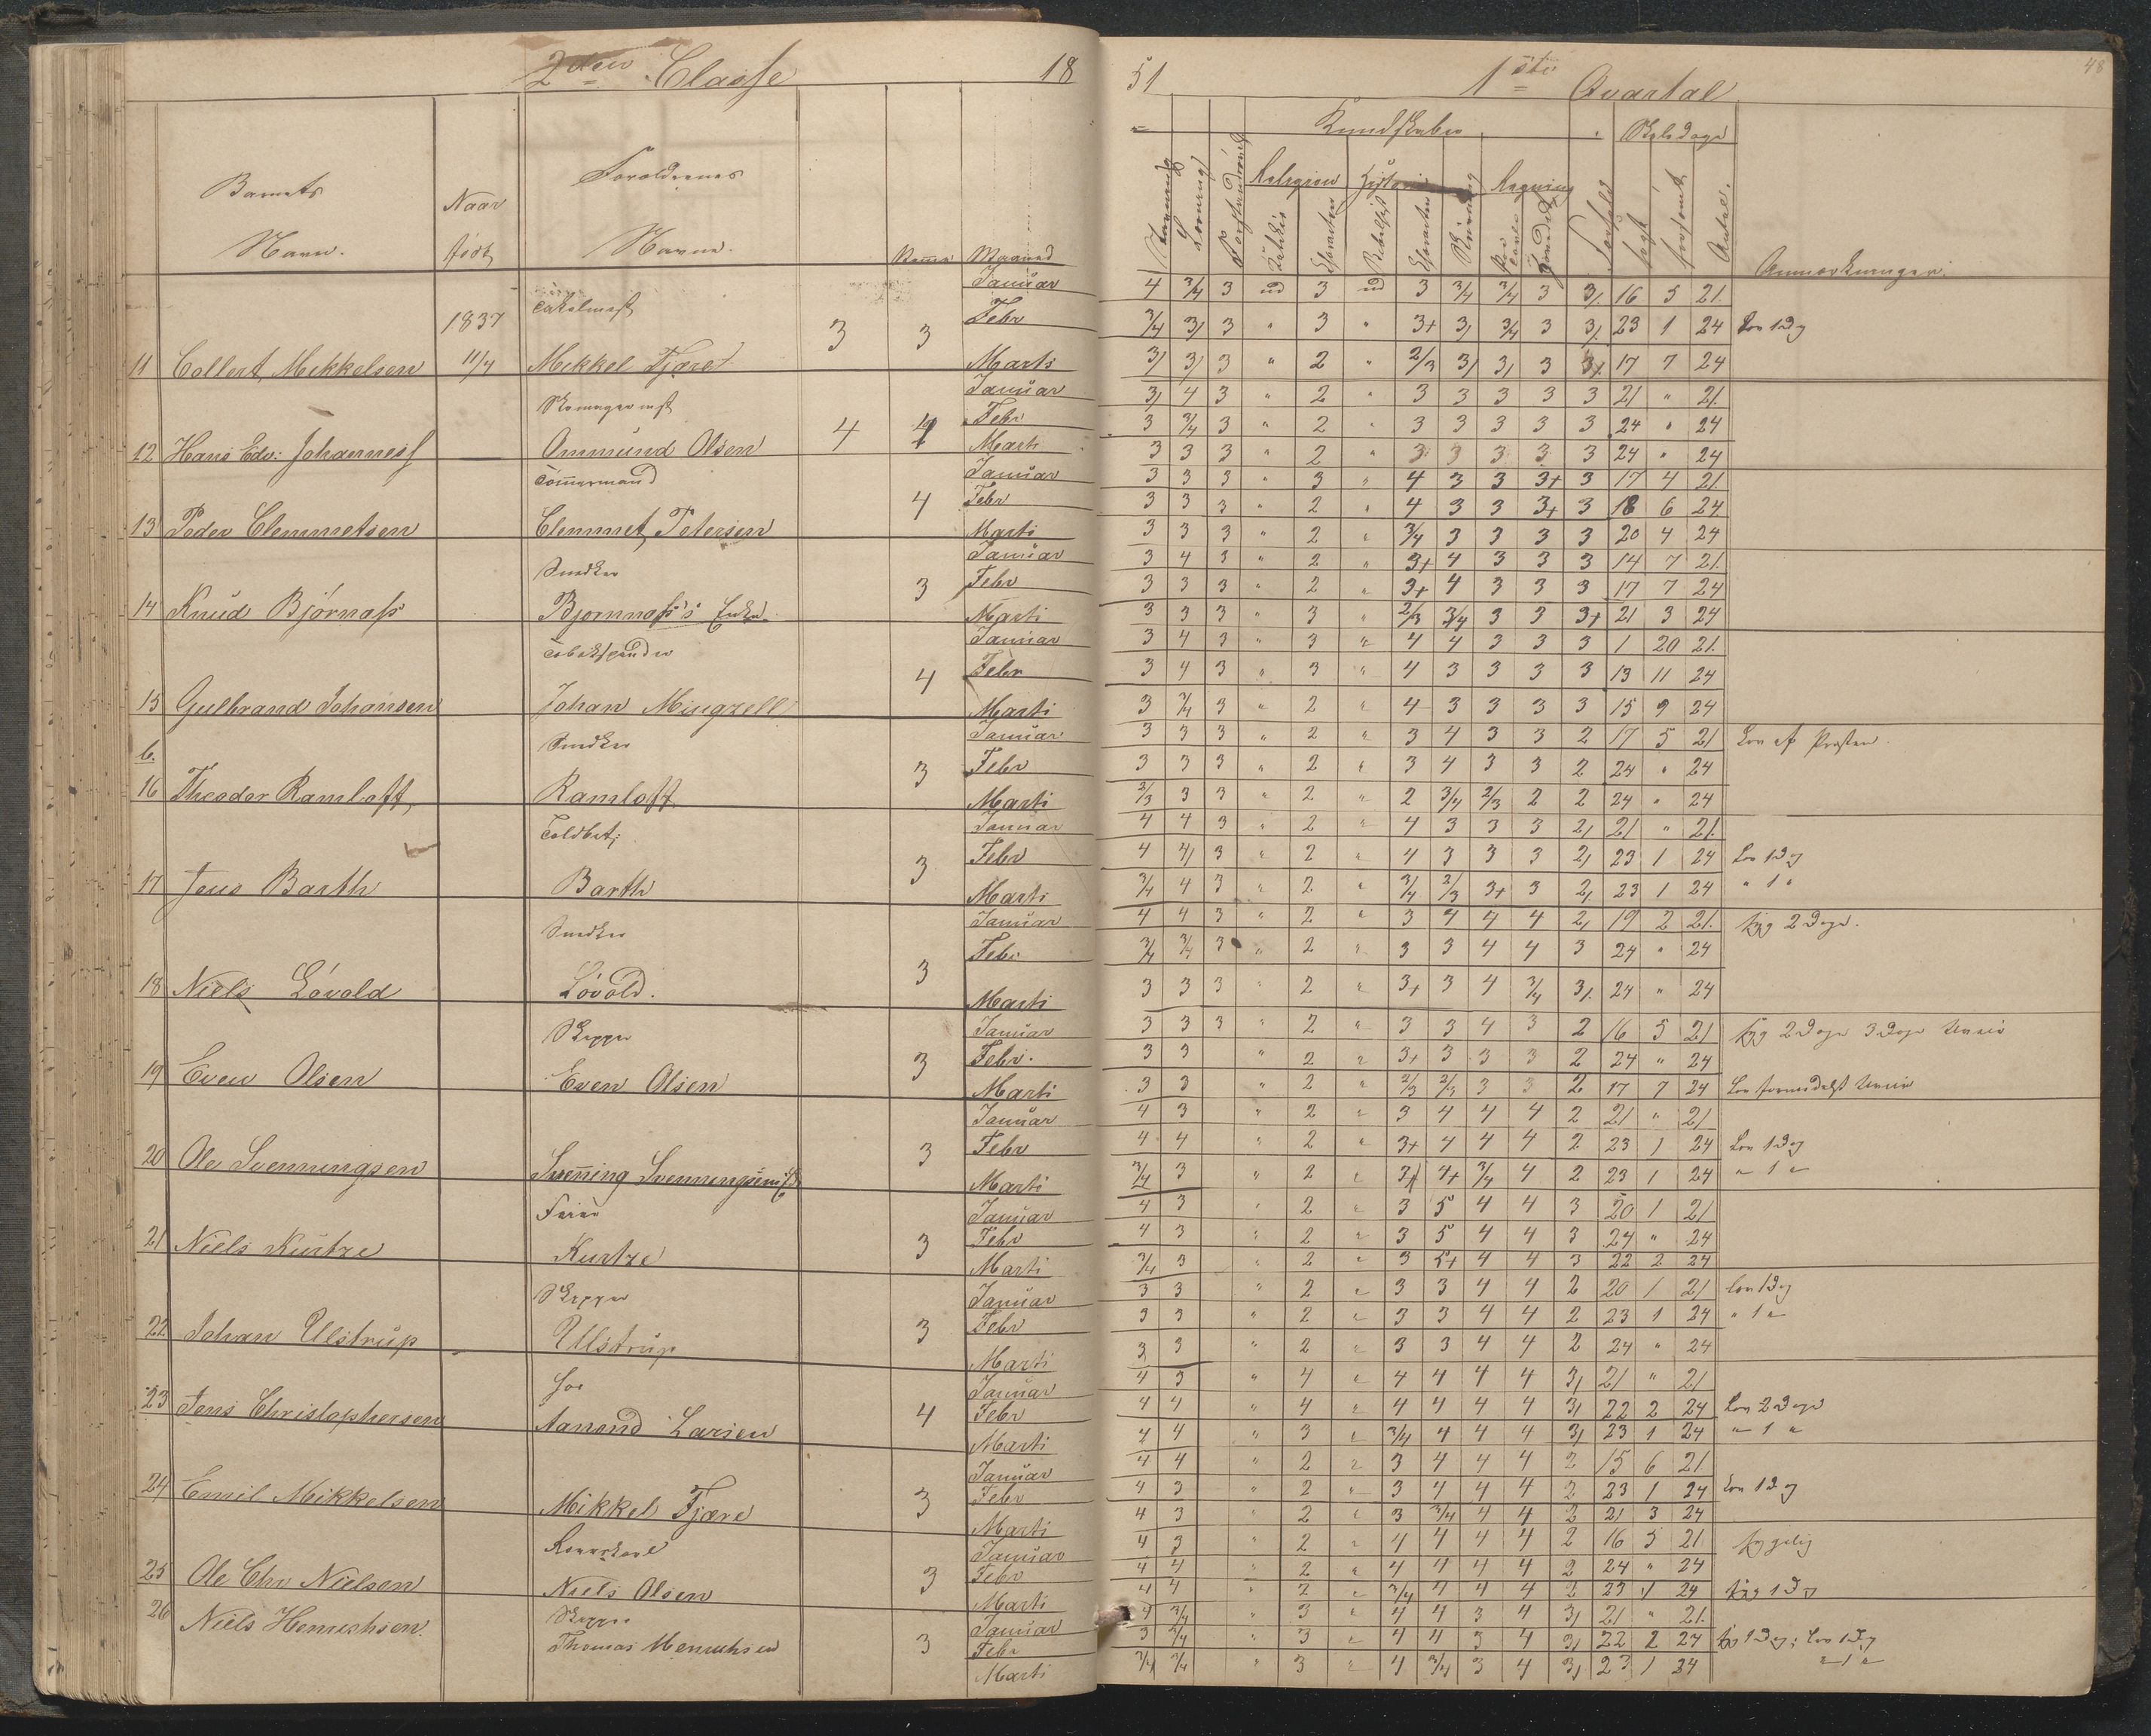 2den Classe 18
51 1ste Qvartal 48
Kundskaber Skoledage
Religion Historie Regning
Barnets Navn. Naar født Forældrenes Navne. Maaned
Anmærkninger.
1837
11 Collert Mekkelsen 11/4 Mekkel Fjære 3 3
Januar 4 3/4 3 ud 3 ud 3 3/4 3/4 3 3/. 16 5 21.
Febr 3/4 3/ 3 " 3 " 3+ 3/ 3/4 3 3/. 23 1 24 Lov 1 Dag
Marti 3/ 3/ 3 " 2 " 2/3 3/ 3/ 3 17 7 24
12 Hans Edv: Johanness Ommund Olsen 4
Januar 3/ 4 3 " 2 " 3 3 3 3 3 21 " 21.
Febr 3 3/4 3 " 2 " 3 3 3 3 3 24 " 24
Marti 3 3 3 " 2 " 3 3 3 3 3 24 " 24
Tømmermand
13 Peder Clemmetsen Clemmet Petersen 4
Januar 3 3 3 " 3 " 4 3 3 3+ 3 17 4 21.
Febr 3 3 3 " 2 " 4 3 3 3+ 3 18 6 24
Marti 3 3 3 " 2 " 3/4 3 3 3 3 20 4 24
Snedker
14 Knud Bjørnass Bjørnass's Enke 3
Januar 3 4 3 " 2 " 3+ 4 3 3 3 14 7 21.
Febr 3 3 3 " 2 " 3+ 4 3 3 3 17 7 24
Marti 3 3 3 " 3 " 2/3 3/4 3 3 3+ 21 3 24
15 Gulbrand Johansen Johan Mingzell 4
Januar 3 4 3 " 3 " 4 4 3 3 3 1 20 21.
Febr 3 4 3 " 3 " 4 3 3 3 3 13 11 24
Marti 3 3/4 3 " 2 " 4 3 3 3 3 15 9 24
Snedker
b.
16 Theodor Ramloft Ramloft 3
Januar 3 3 3 " 2 " 3 4 3 3 2 17 5 21 Lov af Præsten
Febr 3 3 3 " 2 " 3 4 3 3 2 24 " 24
Marti 2/3 3 3 " 2 " 2 3/4 2/3 2 2 24 " 24
Toldbet;
17 Jens Barth Barth 3
Januar 4 4 3 " 2 " 4 3 3 3 2/ 21 " 21.
Febr 4 4/ 3 " 2 " 4 3 3 3 2/ 23 1 24 Lov 1 Dag
Marti 3/4 4 3 " 2 " 3/4 2/3 3+ 3 2/ 23 1 24 " 1 "
Snedker
18 Niels Lövold Lövold. 3
Januar 4 4 3 " 2 " 3 4 4 4 2/ 19 2 21. syg 2 Dage.
Febr 3/4 3/4 3 " 2 " 3 3 4 4 3 24 " 24
Marti 3 3 3 " 2 " 3+ 3 4 3/4 3/. 24 " 24
Skipper
19 Even Olsen Even Olsen 3
Januar 3 3 3 " 2 " 3 3 4 3 2 16 5 21 syg 2 Dage 3 Dage
Febr. 3 3 " 2 " 3+ 3 3 3 2 24 " 24
Marti 3 3 " 2 " 2/3 2/3 3 3 2 17 7 24 Lov formedelst
20 Ole Svenningsen Svenning Svenningsen 3
Januar 4 3 " 2 " 3 4 4 4 2 21 " 21
Febr 4 4 " 2 " 3+ 4 4 4 2 23 1 24 Lov 1 Dag
Marti 3/4 3 " 2 " 4+ 3/4 4 2 23 1 24 " 1 "
21 Niels Kurtze Kurtze 3
Januar 4 3 " 2 " 3 5 4 4 3 20 1 21
Febr 4 3 " 2 " 3 5 4 4 3 24 " 24
Marti 3/4 3 " 2 " 3 5+ 4 4 3 22 2 24
Skipper
22. Johan Ulstrup Ullstrup 3
Januar 3 3 " 2 " 3 3 4 4 2 20 1 21 Lov 1 Dag
Febr 3 3 " 2 " 3 3 4 4 2 23 1 24 " 1 "
Marti 3 3 " 2 " 3 3 4 4 2 24 " 24
23 Jens Christophersen Aanond Larsen 4
Januar 4 3 " 4 " 4 4 4 4 3/ 21 " 21
Febr 4 4 " 4 " 4 4 4 4 3/ 22 2 24 Lov 2 Dage
Marti 4 4 " 3 " 3/4 4 4 4 3/ 23 1 24 " 1 "
24 Emil Mikkelsen Mikkel Fjære 3
Januar 4 4 " 2 " 3 4 4 4 2 15 6 21.
Febr 4 3 " 2 " 3 4 4 4 2 23 1 24 Lov 1 Dag
Marti 4 3 " 2 " 3 3/4 4 4 2 21 3 24
25 Ole Chr Nielsen Niels Olsen 3
Januar 4 3 " 2 " 4 4 4 4 2 16 5 21. sygelig
Febr 4 4 " 2 " 4 4 4 4 2 24 " 24
Marti 4 4 " 2 " 3/4 4 4 4 2 23 1 24 syg 1 Dag
Skipper
26 Niels Henrichsen. Thomas Henrichsen 3
Januar 4 3/4 " 3 " 4 4 3 4 3/ 21 " 21.
Febr 3 3/4 " 3 " 4 4 3 4 3/ 22 2 24 syg 1 Dag; Lov 1 Dag
Marti 3/4 3/4 " 3 " 4 3/4 3 4 3/ 23 1 24 " 1 "